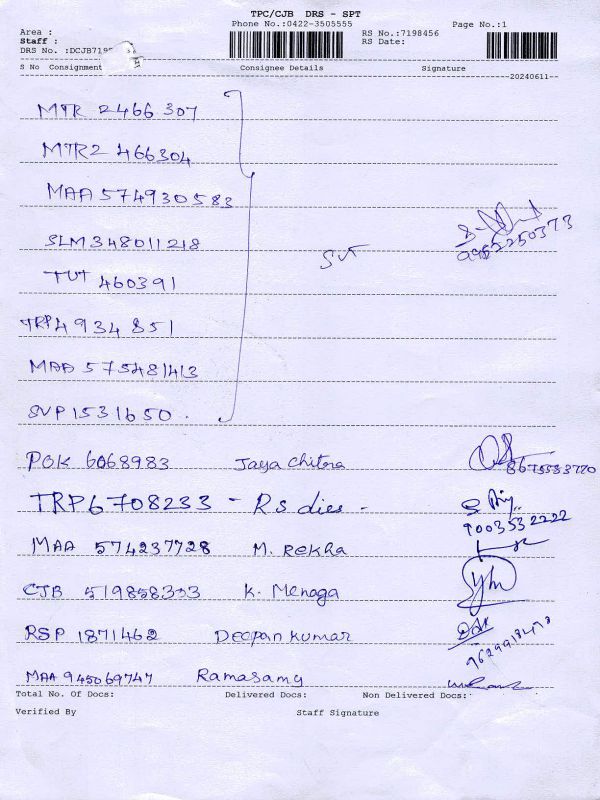 TPC/CJB DRS - SPT
Area : Phone No.:0422-3505555 Page No.:1
Staff : RS No.:7198456
DRS No. :DCJB719 RS Date:
S No Consignment Consignee Details Signature
20240611
MTR 2466307
MTR2 466304
MAA 574930583
SLM348011218
SVT 9952250373
TUT 460391
TRP4934851
MAA 575481413
SVP1531650.
POK 6068983 Jaya chitra 8675583720
TRP6708233 - Rs dies - 9003532222
MAA 574237728 M. Rekha
CJB 519858333 K. Menaga
RSP 1871462 Deepan kumar
MAA 945069747 Ramasamy
Total No. Of Docs: Delivered Docs: Non Delivered Docs:
Verified By Staff Signature